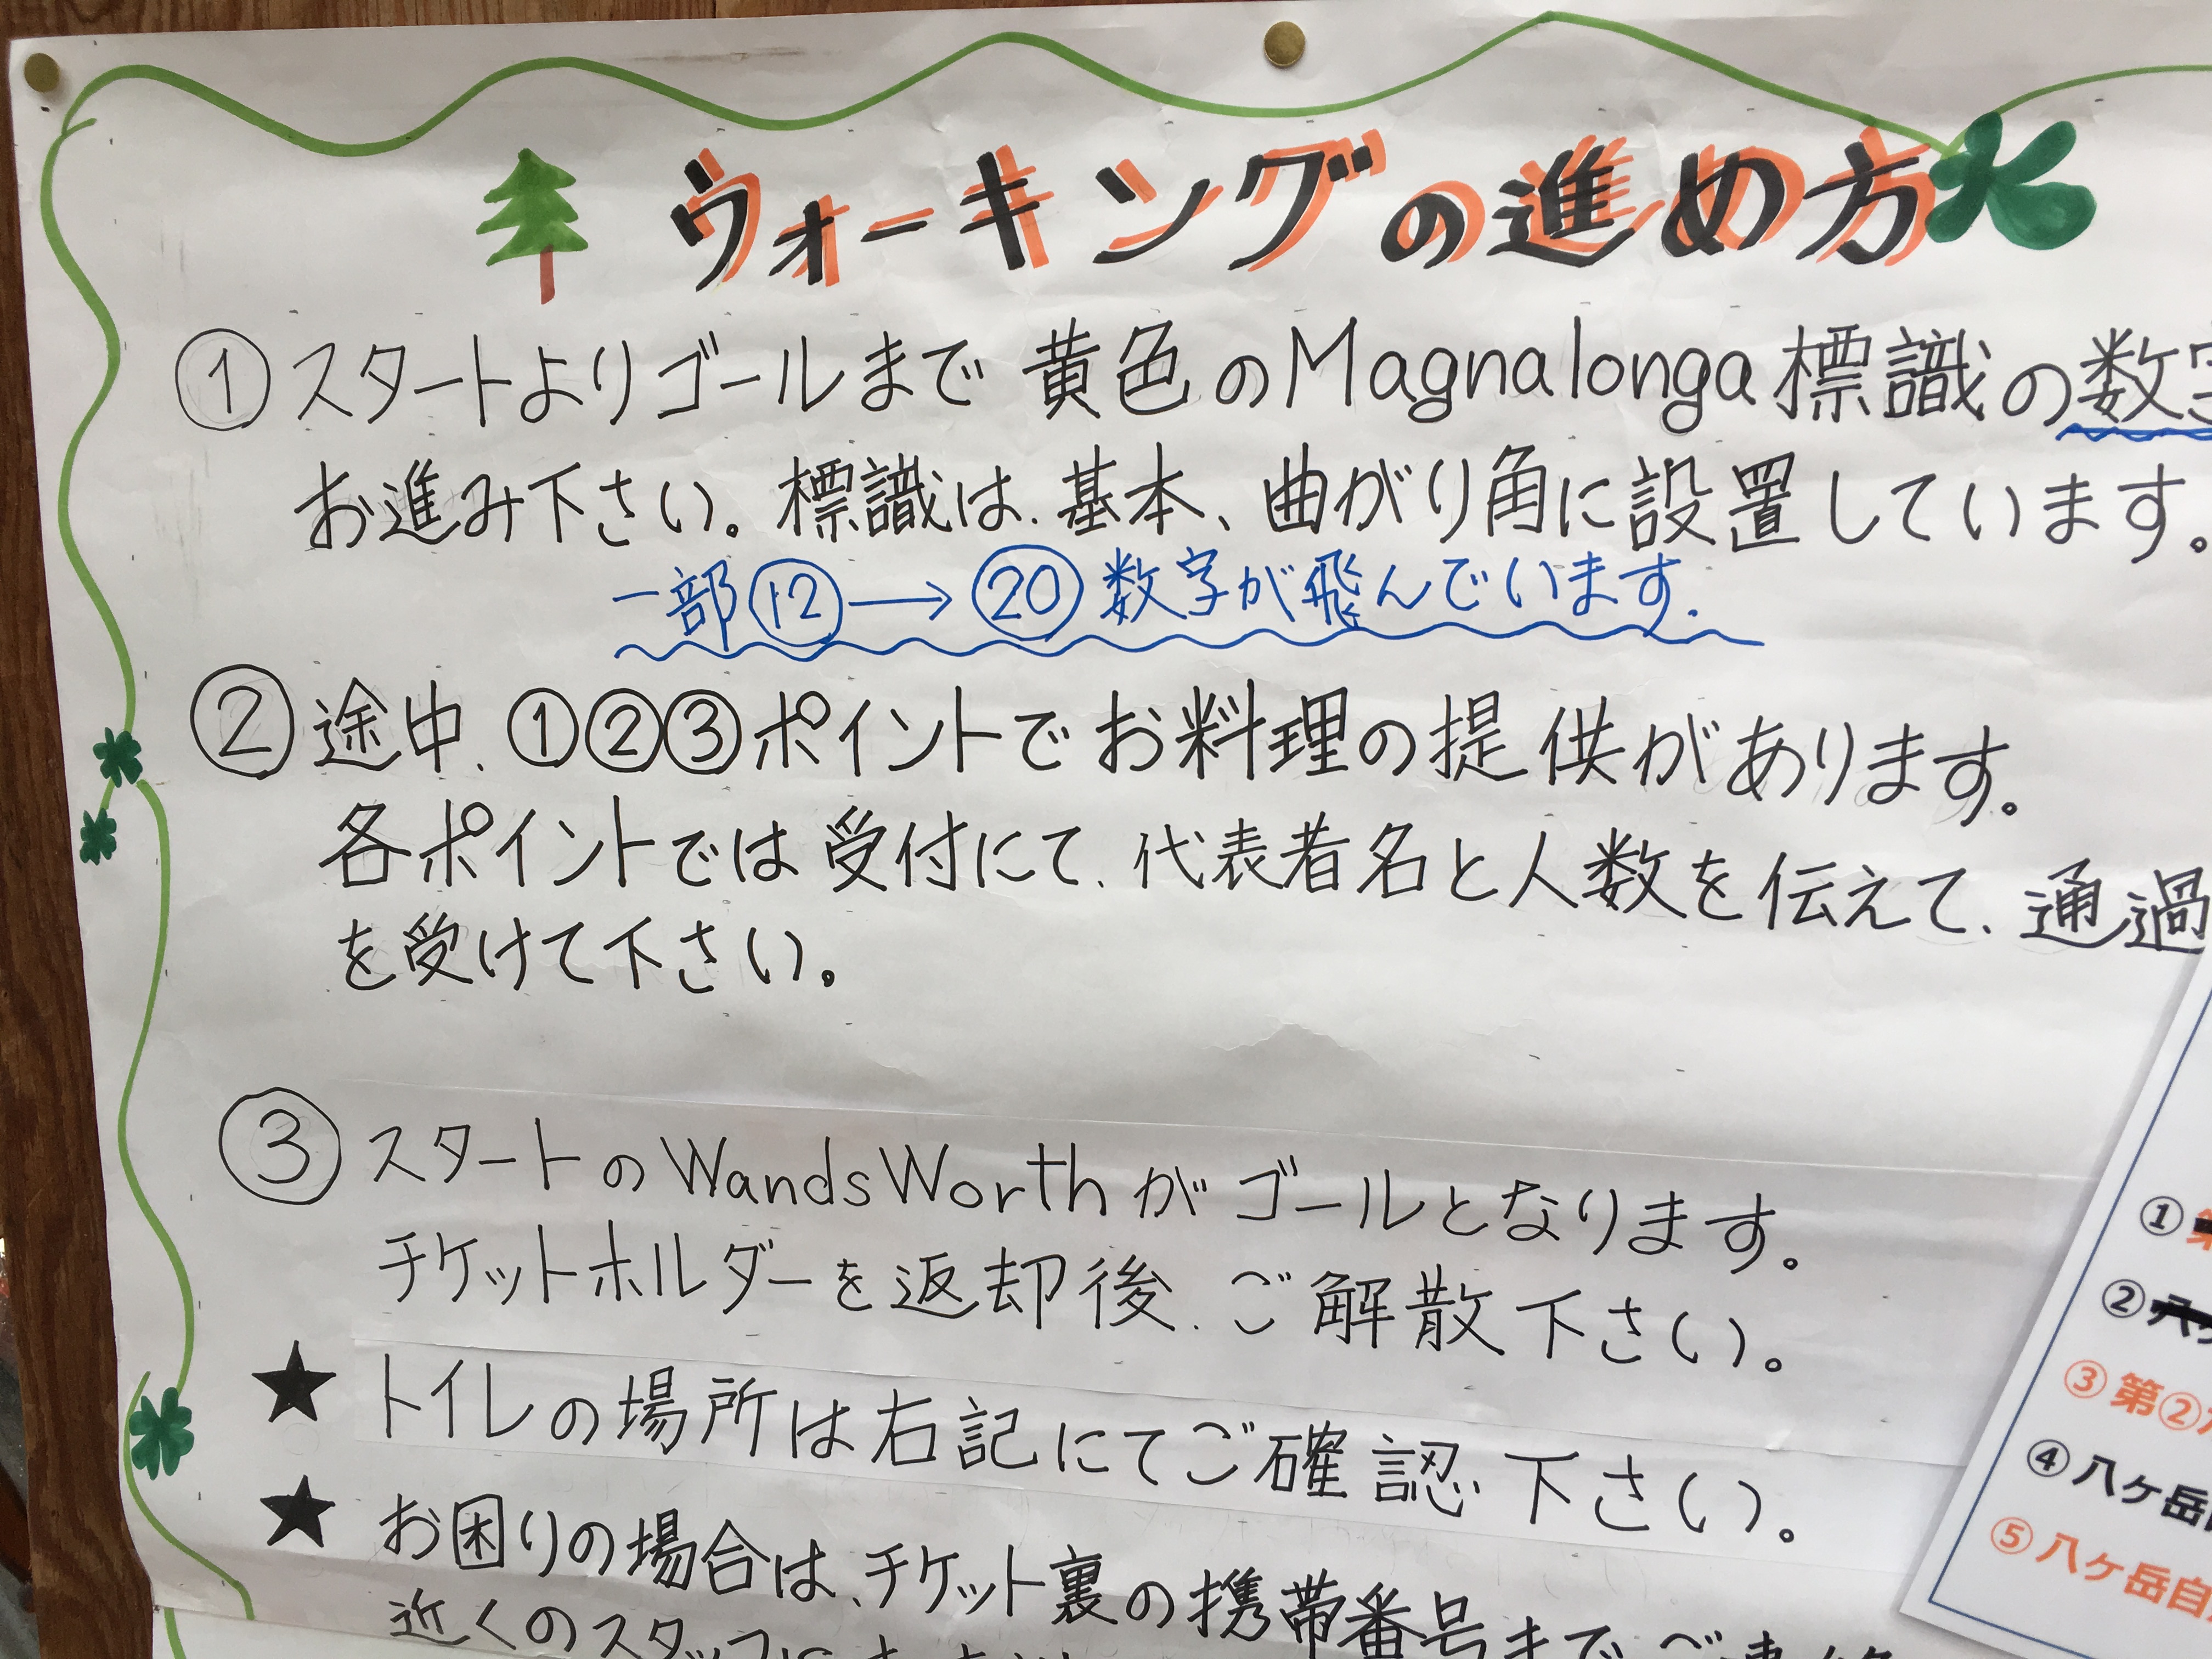 ウォーキングの進め方
① スタートよりゴールまで 黄色のMagnalonga標識の数字
お進み下さい。標識は、基本、曲がり角に設置しています。
一部⑫→⑳数字が飛んでいます.
② 途中、①②③ポイントでお料理の提供があります。
各ポイントでは受付にて、代表者名と人数を伝えて、通過
を受けて下さい。
③ スタートのWandsWorthがゴールとなります。
チケットホルダーを返却後、ご解散下さい。
★ トイレの場所は右記にてご確認下さい。
★ お困りの場合は、チケット裏の携帯番号までご連絡
近くのスタッフに
①
②
③ 第②
④ 八ヶ岳
⑤ 八ヶ岳自